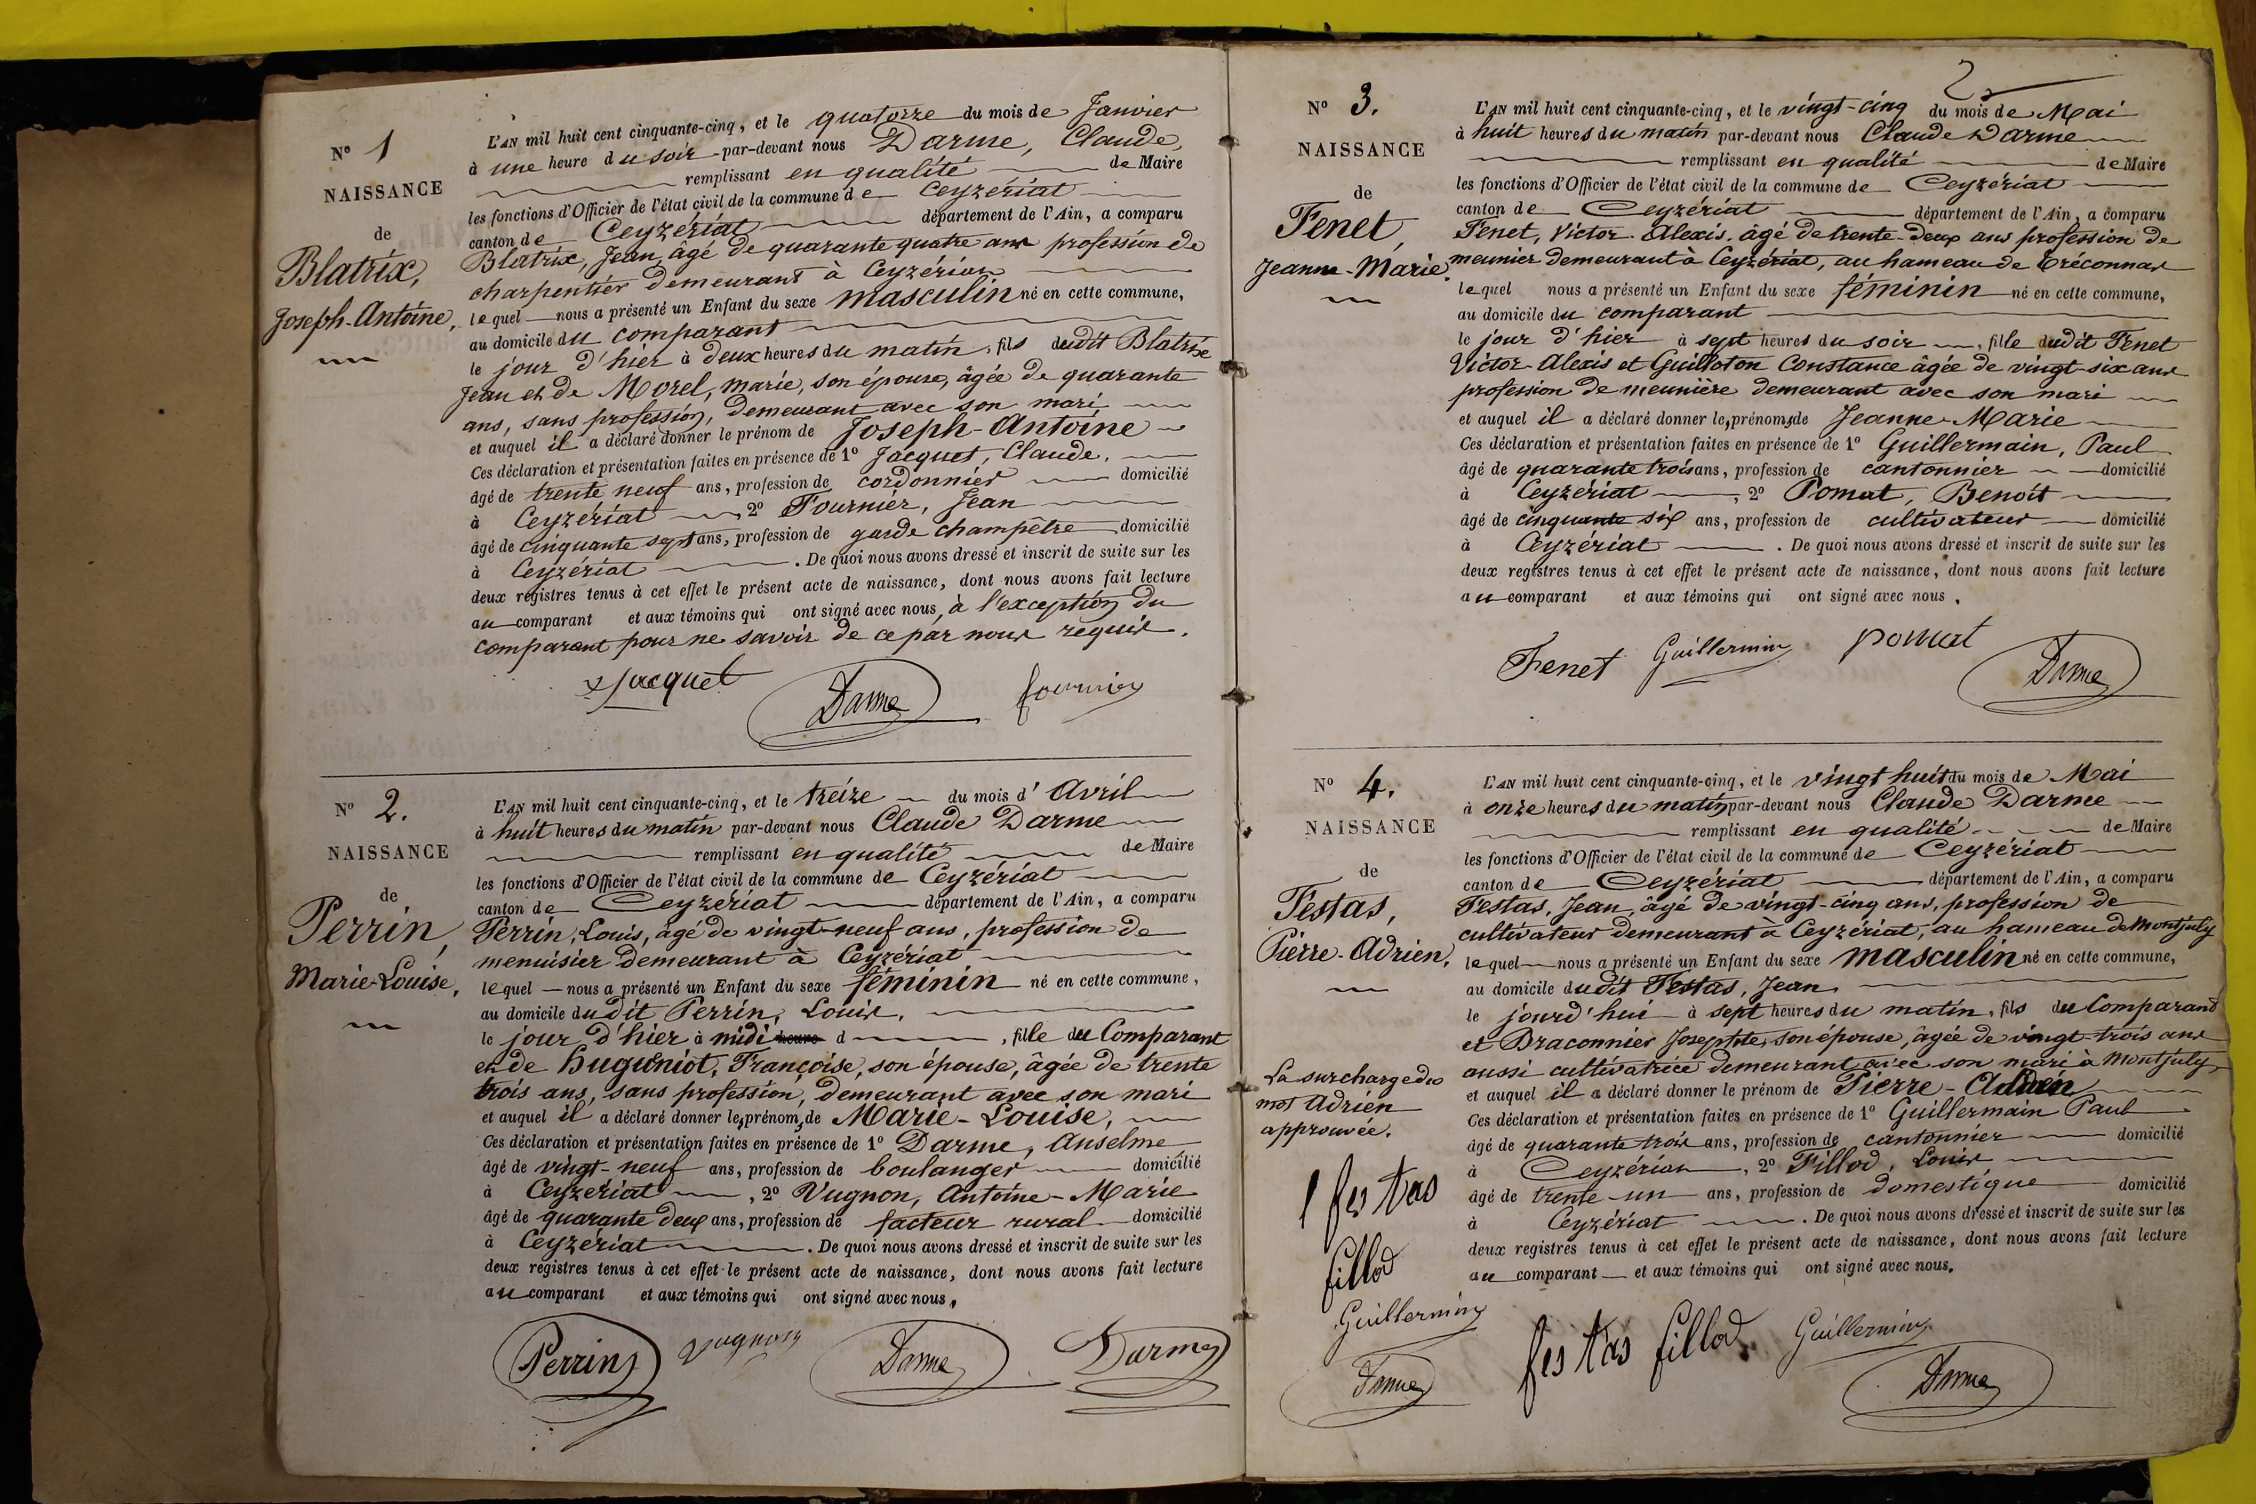 N° 1
NAISSANCE
de
Blatrix,
Joseph-Antoine,
L'AN mil huit cent cinquante-cinq, et le quatorze du mois de Janvier
à une heure du soir par-devant nous Darme, Claude,
remplissant en qualité de Maire
les fonctions d'Officier de l'état civil de la commune de Ceyzériat
canton de Ceyzériat département de l'Ain, a comparu
Blatrix, Jean, âgé de quarante quatre ans profession de
charpentier demeurant à Ceyzériat
lequel nous a présenté un Enfant du sexe masculin né en cette commune,
au domicile du comparant
le jour d'hier à deux heures du matin, fils dudit Blatrix
Jean et de Morel, Marie, son épouse, âgée de quarante
ans, sans profession, demeurant avec son mari
et auquel il a déclaré donner le prénom de Joseph-Antoine
Ces déclaration et présentation faites en présence de 1° Jacquet, Claude,
âgé de trente neuf ans, profession de cordonnier domicilié
à Ceyzériat, 2° Fournier, Jean
âgé de cinquante sept ans, profession de garde champêtre domicilié
à Ceyzériat. De quoi nous avons dressé et inscrit de suite sur les
deux registres tenus à cet effet le présent acte de naissance, dont nous avons fait lecture
au comparant et aux témoins qui ont signé avec nous, à l'exception du
comparant pour ne savoir de ce par nous requis.
Jacquet Darme fournier
N° 2.
NAISSANCE
de
Perrin,
Marie-Louise,
L'AN mil huit cent cinquante-cinq, et le treize du mois d'Avril
à huit heures du matin par-devant nous Claude Darme
remplissant en qualité de Maire
les fonctions d'Officier de l'état civil de la commune de Ceyzériat
canton de Ceyzériat département de l'Ain, a comparu
Perrin, Louis, âgé de vingt-neuf ans, profession de
menuisier demeurant à Ceyzériat
lequel nous a présenté un Enfant du sexe féminin né en cette commune,
au domicile dudit Perrin, Louis,
le jour d'hier à midi heure d, fille du Comparant
et de Huguniot, Françoise, son épouse, âgée de trente
trois ans, sans profession, demeurant avec son mari
et auquel il a déclaré donner les prénoms de Marie-Louise,
Ces déclaration et présentation faites en présence de 1° Darme, Anselme
âgé de vingt-neuf ans, profession de boulanger domicilié
à Ceyzériat, 2° Vugnon, Antoine-Marie
âgé de quarante deux ans, profession de facteur rural domicilié
à Ceyzériat. De quoi nous avons dressé et inscrit de suite sur les
deux registres tenus à cet effet le présent acte de naissance, dont nous avons fait lecture
au comparant et aux témoins qui ont signé avec nous.
Perrin Vugnon Darme Darme
2
N° 3.
NAISSANCE
de
Fenet,
Jeanne-Marie.
L'AN mil huit cent cinquante-cinq, et le vingt-cinq du mois de Mai
à huit heures du matin par-devant nous Claude Darme
remplissant en qualité de Maire
les fonctions d'Officier de l'état civil de la commune de Ceyzériat
canton de Ceyzériat département de l'Ain, a comparu
Fenet, Victor-Alexis, âgé de trente-deux ans profession de
meunier demeurant à Ceyzériat, au hameau de Tréconnas
lequel nous a présenté un Enfant du sexe féminin né en cette commune,
au domicile du comparant
le jour d'hier à sept heures du soir, fille dudit Fenet
Victor-Alexis et Guilloton Constance âgée de vingt-six ans
profession de meunière demeurant avec son mari
et auquel il a déclaré donner les prénoms de Jeanne-Marie
Ces déclaration et présentation faites en présence de 1° Guillermain, Paul
âgé de quarante trois ans, profession de cantonnier domicilié
à Ceyzériat, 2° Pomat, Benoît
âgé de cinquante six ans, profession de cultivateur domicilié
à Ceyzériat. De quoi nous avons dressé et inscrit de suite sur les
deux registres tenus à cet effet le présent acte de naissance, dont nous avons fait lecture
au comparant et aux témoins qui ont signé avec nous.
Fenet Guillermin pomat Darme
N° 4.
NAISSANCE
de
Festas,
Pierre-Adrien,
La surcharge du
mot Adrien
approuvée.
festas
fillod
Guillermin
Darme
L'AN mil huit cent cinquante-cinq, et le vingt huit du mois de Mai
à onze heures du matin par-devant nous Claude Darme
remplissant en qualité de Maire
les fonctions d'Officier de l'état civil de la commune de Ceyzériat
canton de Ceyzériat département de l'Ain, a comparu
Festas, Jean, âgé de vingt-cinq ans, profession de
cultivateur demeurant à Ceyzériat, au hameau de Montjuly
lequel nous a présenté un Enfant du sexe masculin né en cette commune,
au domicile dudit Festas, Jean,
le jourd'hui à sept heures du matin, fils du Comparant
et Draconnier Josephte, son épouse, âgée de vingt-trois ans
aussi cultivatrice demeurant avec son mari à Montjuly,
et auquel il a déclaré donner le prénom de Pierre-Adrien
Ces déclaration et présentation faites en présence de 1° Guillermain Paul
âgé de quarante trois ans, profession de cantonnier domicilié
à Ceyzériat, 2° Fillod, Louis
âgé de trente-un ans, profession de domestique domicilié
à Ceyzériat. De quoi nous avons dressé et inscrit de suite sur les
deux registres tenus à cet effet le présent acte de naissance, dont nous avons fait lecture
au comparant et aux témoins qui ont signé avec nous.
festas fillod Guillermin Darme